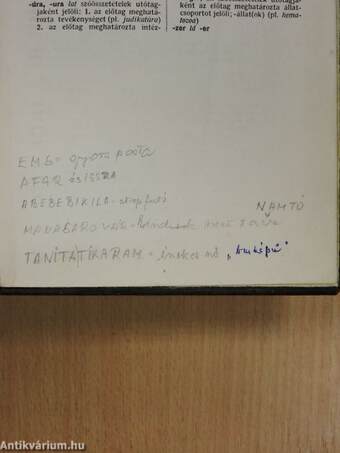 -úra, -ura lat szóösszetételek utótag-
jaként jelöli: 1. az előtag meghatá-
rozta tevékenységet (pl. judikatúra)
2. az előtag meghatározta intéz-
ként az előtag meghatározta állat-
csoportot jelöli; -állat(ok) (pl. hema-
tozoa)
-zer ld -er
EMS= gyors posta
AFAR és ISSZA
ABEBE BIKILA - futó
NAMTÓ
TANÍTA TIKARAM - énekes nő „
Antikvárium.hu